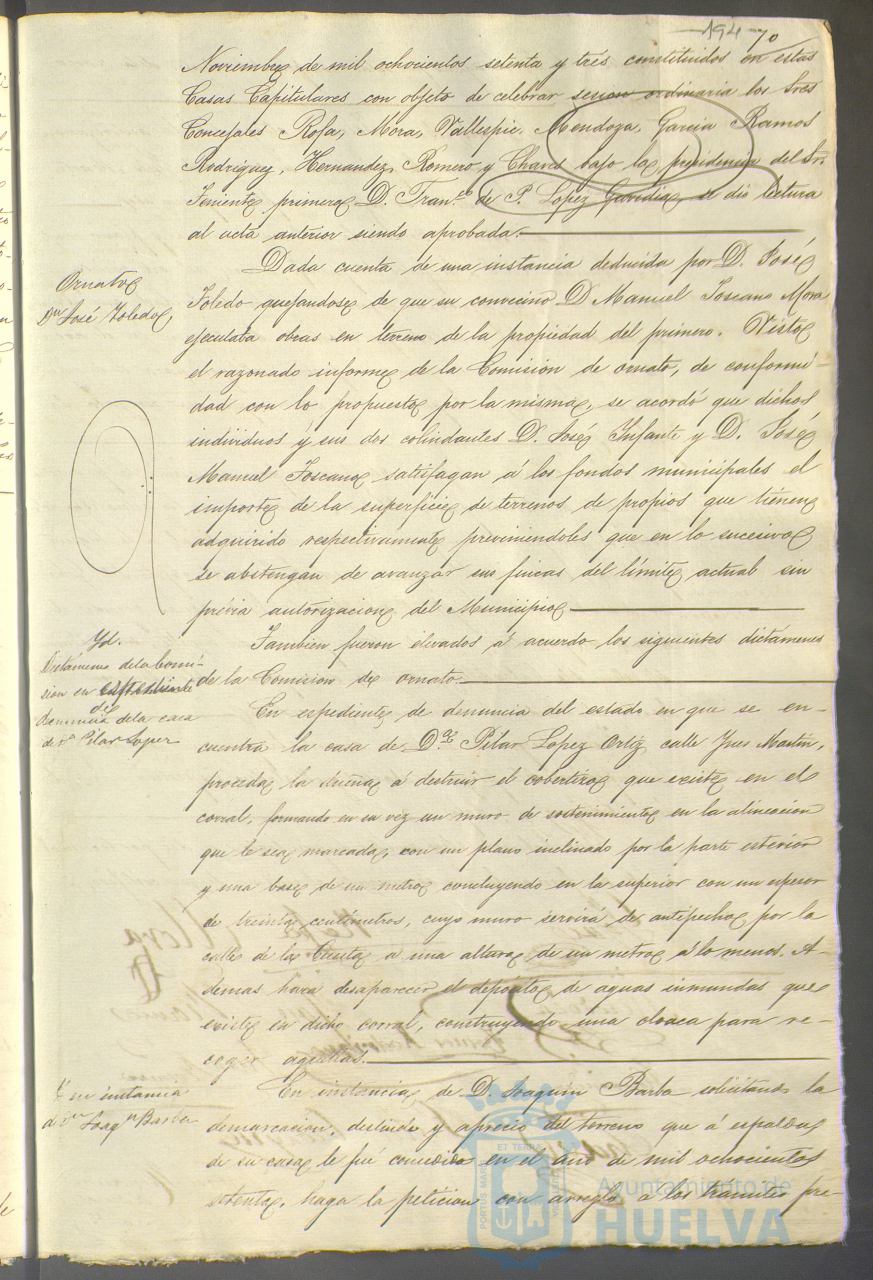 194 70
Noviembre de mil ochocientos setenta y tres constituidos en estas
Casas Capitulares con objeto de celebrar sesion ordinaria los Sres
Concejales Rosa, Mora, Vallespin, Mendoza, Garcia Ramos
Rodriguez, Hernandez, Romero y Chaves bajo la presidencia del Sr.
Teniente primero D. Fran.co de P. Lopez se dió lectura
al acta anterior siendo aprobada.
Ornato
Dn José Toledo,
Dada cuenta de una instancia deducida por D. José
Toledo quejandose de que su convecino D Manuel Toscano Mora
ejecutaba obras en terreno de la propiedad del primero. Visto
el razonado informe de la Comision de ornato, de conformi-
dad con lo propuesto por la misma, se acordó que dichos
individuos y sus dos colindantes D. José Infante y D. José
Manuel Toscano satisfagan á los fondos municipales el
importe de la superficie de terrenos de propios que tienen
adquirido respectivamente previniendoles que en lo sucesivo
se abstengan de avanzar sus fincas del límite actual sin
prévia autorizacion del Municipio
Yd.
Dictámenes de la Comi-
sion en expediente
de
denuncia de la casa
de Da Pilar Lopez
Tambien fueron elevados á acuerdo los siguientes dictámenes
de la Comision de ornato.
En espediente de denuncia del estado en que se en-
cuentra la casa de D.a Pilar Lopez Ortiz calle Ynes Martin,
proceda la dueña á destruir el cobertizo que existe en el
corral, formando en su vez un muro de sostenimiento en la alineacion
que le sea marcada, con un plano inclinado por la parte esterior
y una base de un metro concluyendo en la superior con un espesor
de treinta centímetros, cuyo muro servirá de antepecho por la
calle de la á una altura de un metro á lo menos. A-
demas hará desaparecer el depósito de aguas inmundas que
existe en dicho corral, construyendo una cloaca para re-
coger aquellas.
Yd en instancia
de Dn Joaqn Barba
En instancia de D. Joaquin Barba solicitando la
demarcacion, deslinde y aprecio del terreno que á espaldas
de su casa le fué concedido en el año de mil ochocientos
setenta, haga la peticion con arreglo á los tramites pre-
PORTUS MARIS ET TERRAE CUSTODIA
Ayuntamiento de
HUELVA